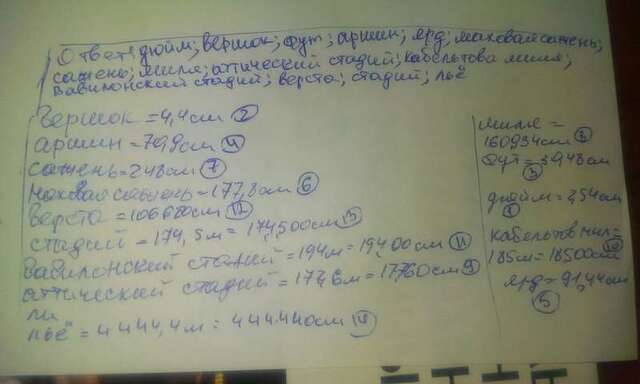 Ответ: дюйм; вершок; фут; аршин; ярд; маховая сажень;
сажень; миля; аттический стадий; кабельтова миля;
вавилонский стадий; верста; стадий; льё
Вершок = 4,4 см 2
аршин = 79,9 см 4
сажень = 248 см 7
маховая сажень = 177,8 см 6
верста = 106680 см 12
стадий = 174,5 м = 174,500 см 13
Вавилонский стадий = 194 м = 19,400 см 11
аттический стадий = 177,6 м = 17,760 см 9
льё = 4444,4 м = 444.440 см 14
миля =
160934 см 8
фут = 39,48 см
3
дюйм = 2,54 см
1
кабельтов мил=
185 м = 18500 см 10
ярд = 91,44 см
5